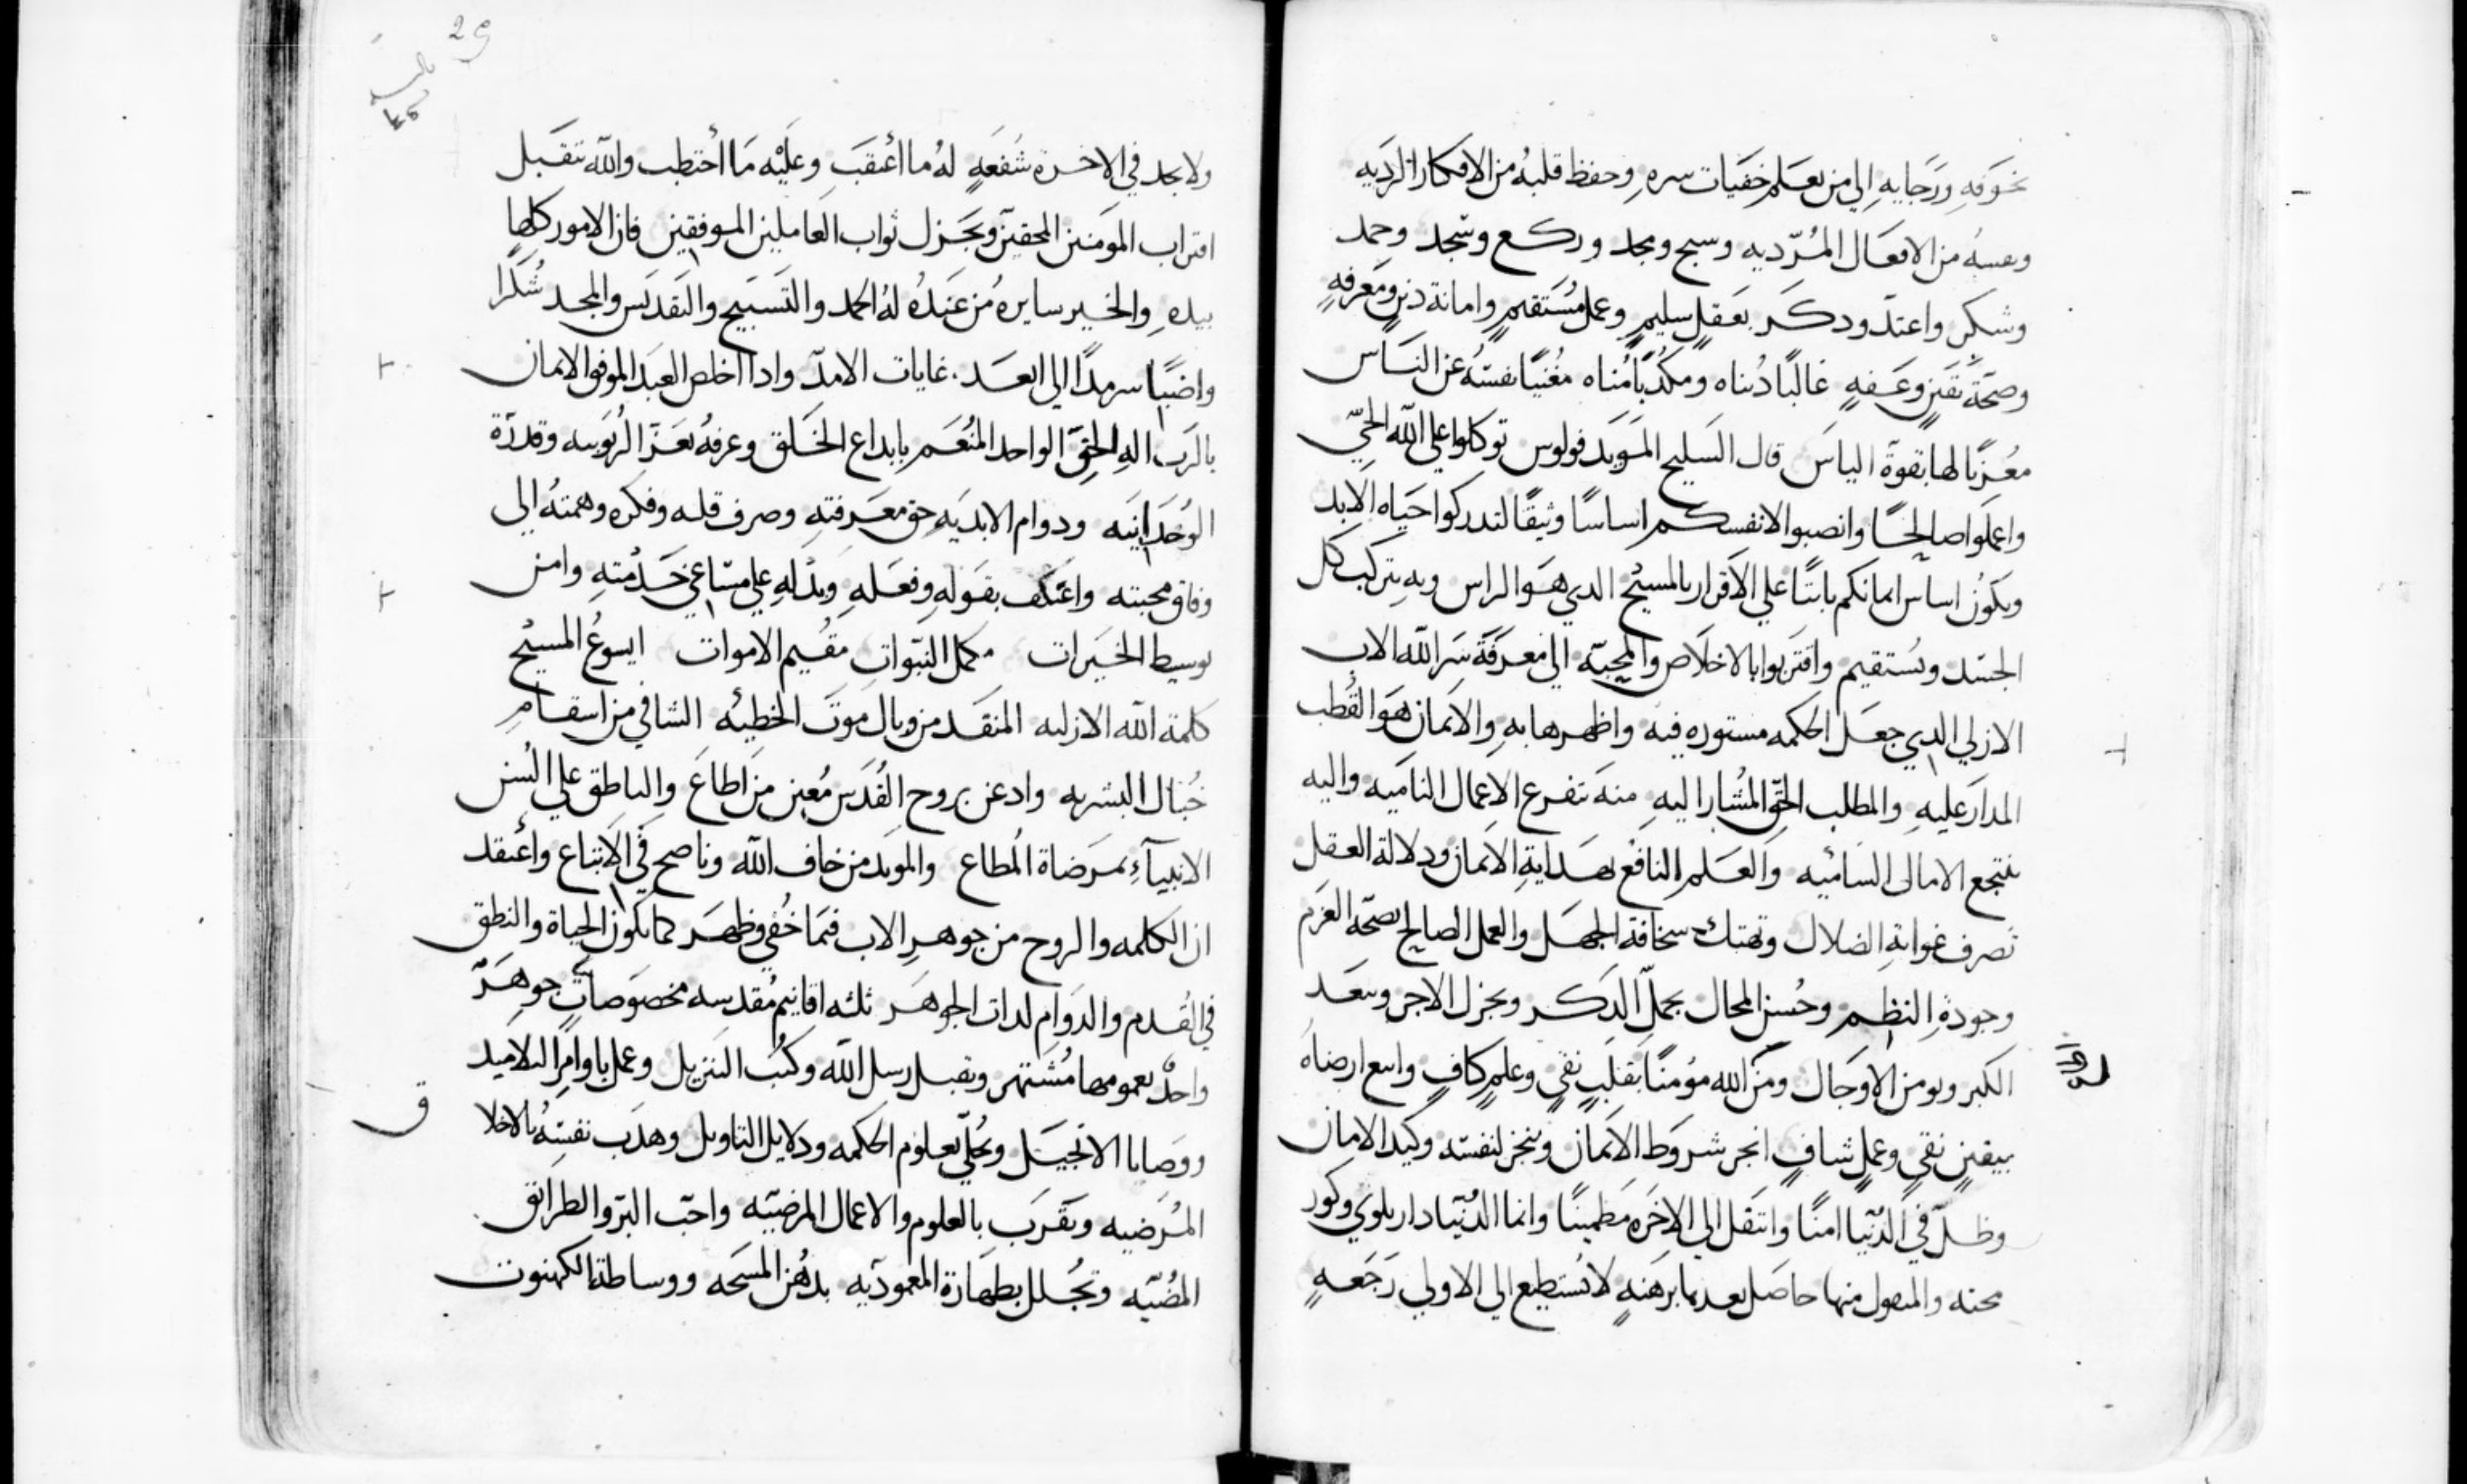 بخوفهِ ورَجايهِ الي من يعلم خفيات سرهِ وحفظ قلبهُ من الافكار الرديه
ونفسهُ من الافعال المُرّديه وسبح ومجد وركع وسجد وحمد
وشكر واعتدّ ودكَر بعَقلٍ سليمٍ وعملٍ مُستَقيمٍ وامانة دينٍ ومَعرفهٍ
وصحّة يقينٍ وعفهٍ غالبًا دُنياه ومكدبًا مُناه مغُنيًا نفسَهُ عن النَاس
معُزيًا لها بقوة الياسَ قال السَليح المَويَد فولوس توكلوا علي اللّه الحيّ
واعملَوا صالحًا وانصبوا لانفسكم اساسًا وثيقًا لتدركوا حَياه الابد
ويكَونُ اساس ايمانكم ثابتًا علي الاَقرار بالمسيح الدي هَوا الراس وبهِ يتركب كل
الجسَد ويُستقيم واقتربوا بالاخلاَص والمحبّه الي معرفَة سَر اللّه الاب
الازلي الدي جعَل الحكمه مستوره فيه واظهرها بهِ والايمان هَوا القُطب
المدارَ عليهِ والمطلب الحقّ المُشار اليهِ منهَ تتفرع الاعمال النامَيه واليه
ينتجع الامال السَاميه والعَلم النافع بهدايةِ الايمان ودلالة العقل
تَصرف غوايةِ الضلال وتهتك سخافة الجهَل والعمل الصالح بصحّة العَزم
وجودةِ النظمِ وحُسن المحال يجملّ الدَكر ويجزل الاجر ويبعَد
الكبر ويومن الاوجَال ومنَ اللّه مؤمنًا بقلبٍ نقيٍ وعلمٍ كافٍ واسع ارضاهُ
بيقينٍ نقيٍ وعملٍ شافٍ انجز شروَط الاَيمان وينجز لنفسَه وكيد الامان
وظلّ في الدُنيا امنًا وانتَقل الي الاخَره مَطمينًا وانما الدُنيَا دار بلوَي وكَور
محنه والمنقول منها حاصَل بعدها برَهَنهٍ لا يُستطيع الي الاولي رَجَعهٍ
ولا يجد في الاخرة شُفعَهٍ لهُ ما أعقبَ وعلَيْه مَا أحتطب واللّه يتقبَل
اقتراب المَومنين المحقينَ ويجَزل ثواب العَاملين الموفقين فان الامور كلها
بيدهِ والخير سايرهُ من عَندهُ لهُ الحَمد والتَسَبيح والتَقديَس والمجد شُكرًا
واضبًا سرمدًا الي ابعَد غايات الامدّ وادا اخلص العبَد الموفق الايمان
بالرَب الهِ الحقّ الواحد المنُعَم بابداع الخَلق وعرفهُ بعَزّ الرُبوَبيه وقدرَة
الوُحَدانيَه ودوام الابديَهِ حق معَرفتهِ وصرف قلبه وفكرَه وهمتهُ الي
وفاق محبته واعَتكف بقوَلهِ وفعَلهِ وبدَلهِ علي مسَاعي خَدمتهِ وامن
بوسيط الخيَرات مكمل النبّوات مقُيم الاموات ايسوعُ المسيح
كلمة اللّه الازليه المنقَد من وبال موتَ الخطيئه الشافي من اسقام
خُبال البشريه وادعن بروح القُدَس مُعين من اطاعَ والناطق علي السُن
الانبيآءِ بمَرضاة المُطاع والمويد من خاف اللّه وناصح في الاتباع واعتقد
ان الكلمه والروح من جوهرِ الاب فيَما خُفي وظهَر كما يكون الحياة والنطق
في القُدم والدوَامِ لدات الجوهَر ثلثه اقانيم مُقدسه مخصَوصَاتٍ جوهَرّ
واحدٌ بعمومها مُشَتهر وتقبل رسل اللّه وكُتب التنزيل وعمل باوامِر التلاميد
ووَصايا الانجيَل وتحُليّ بعلوم الحكمه ودلايل التاويل وهدَب نفسَهُ بالاخلا
ق
المُرَضيه وتقَربَ بالعلوم والاعمال المرضيّه واحّب البّر والطرائق
المُضيّه وتجُلل بطهَارة المعموديه بدهُن المسَحَه ووساطة الكهنوت